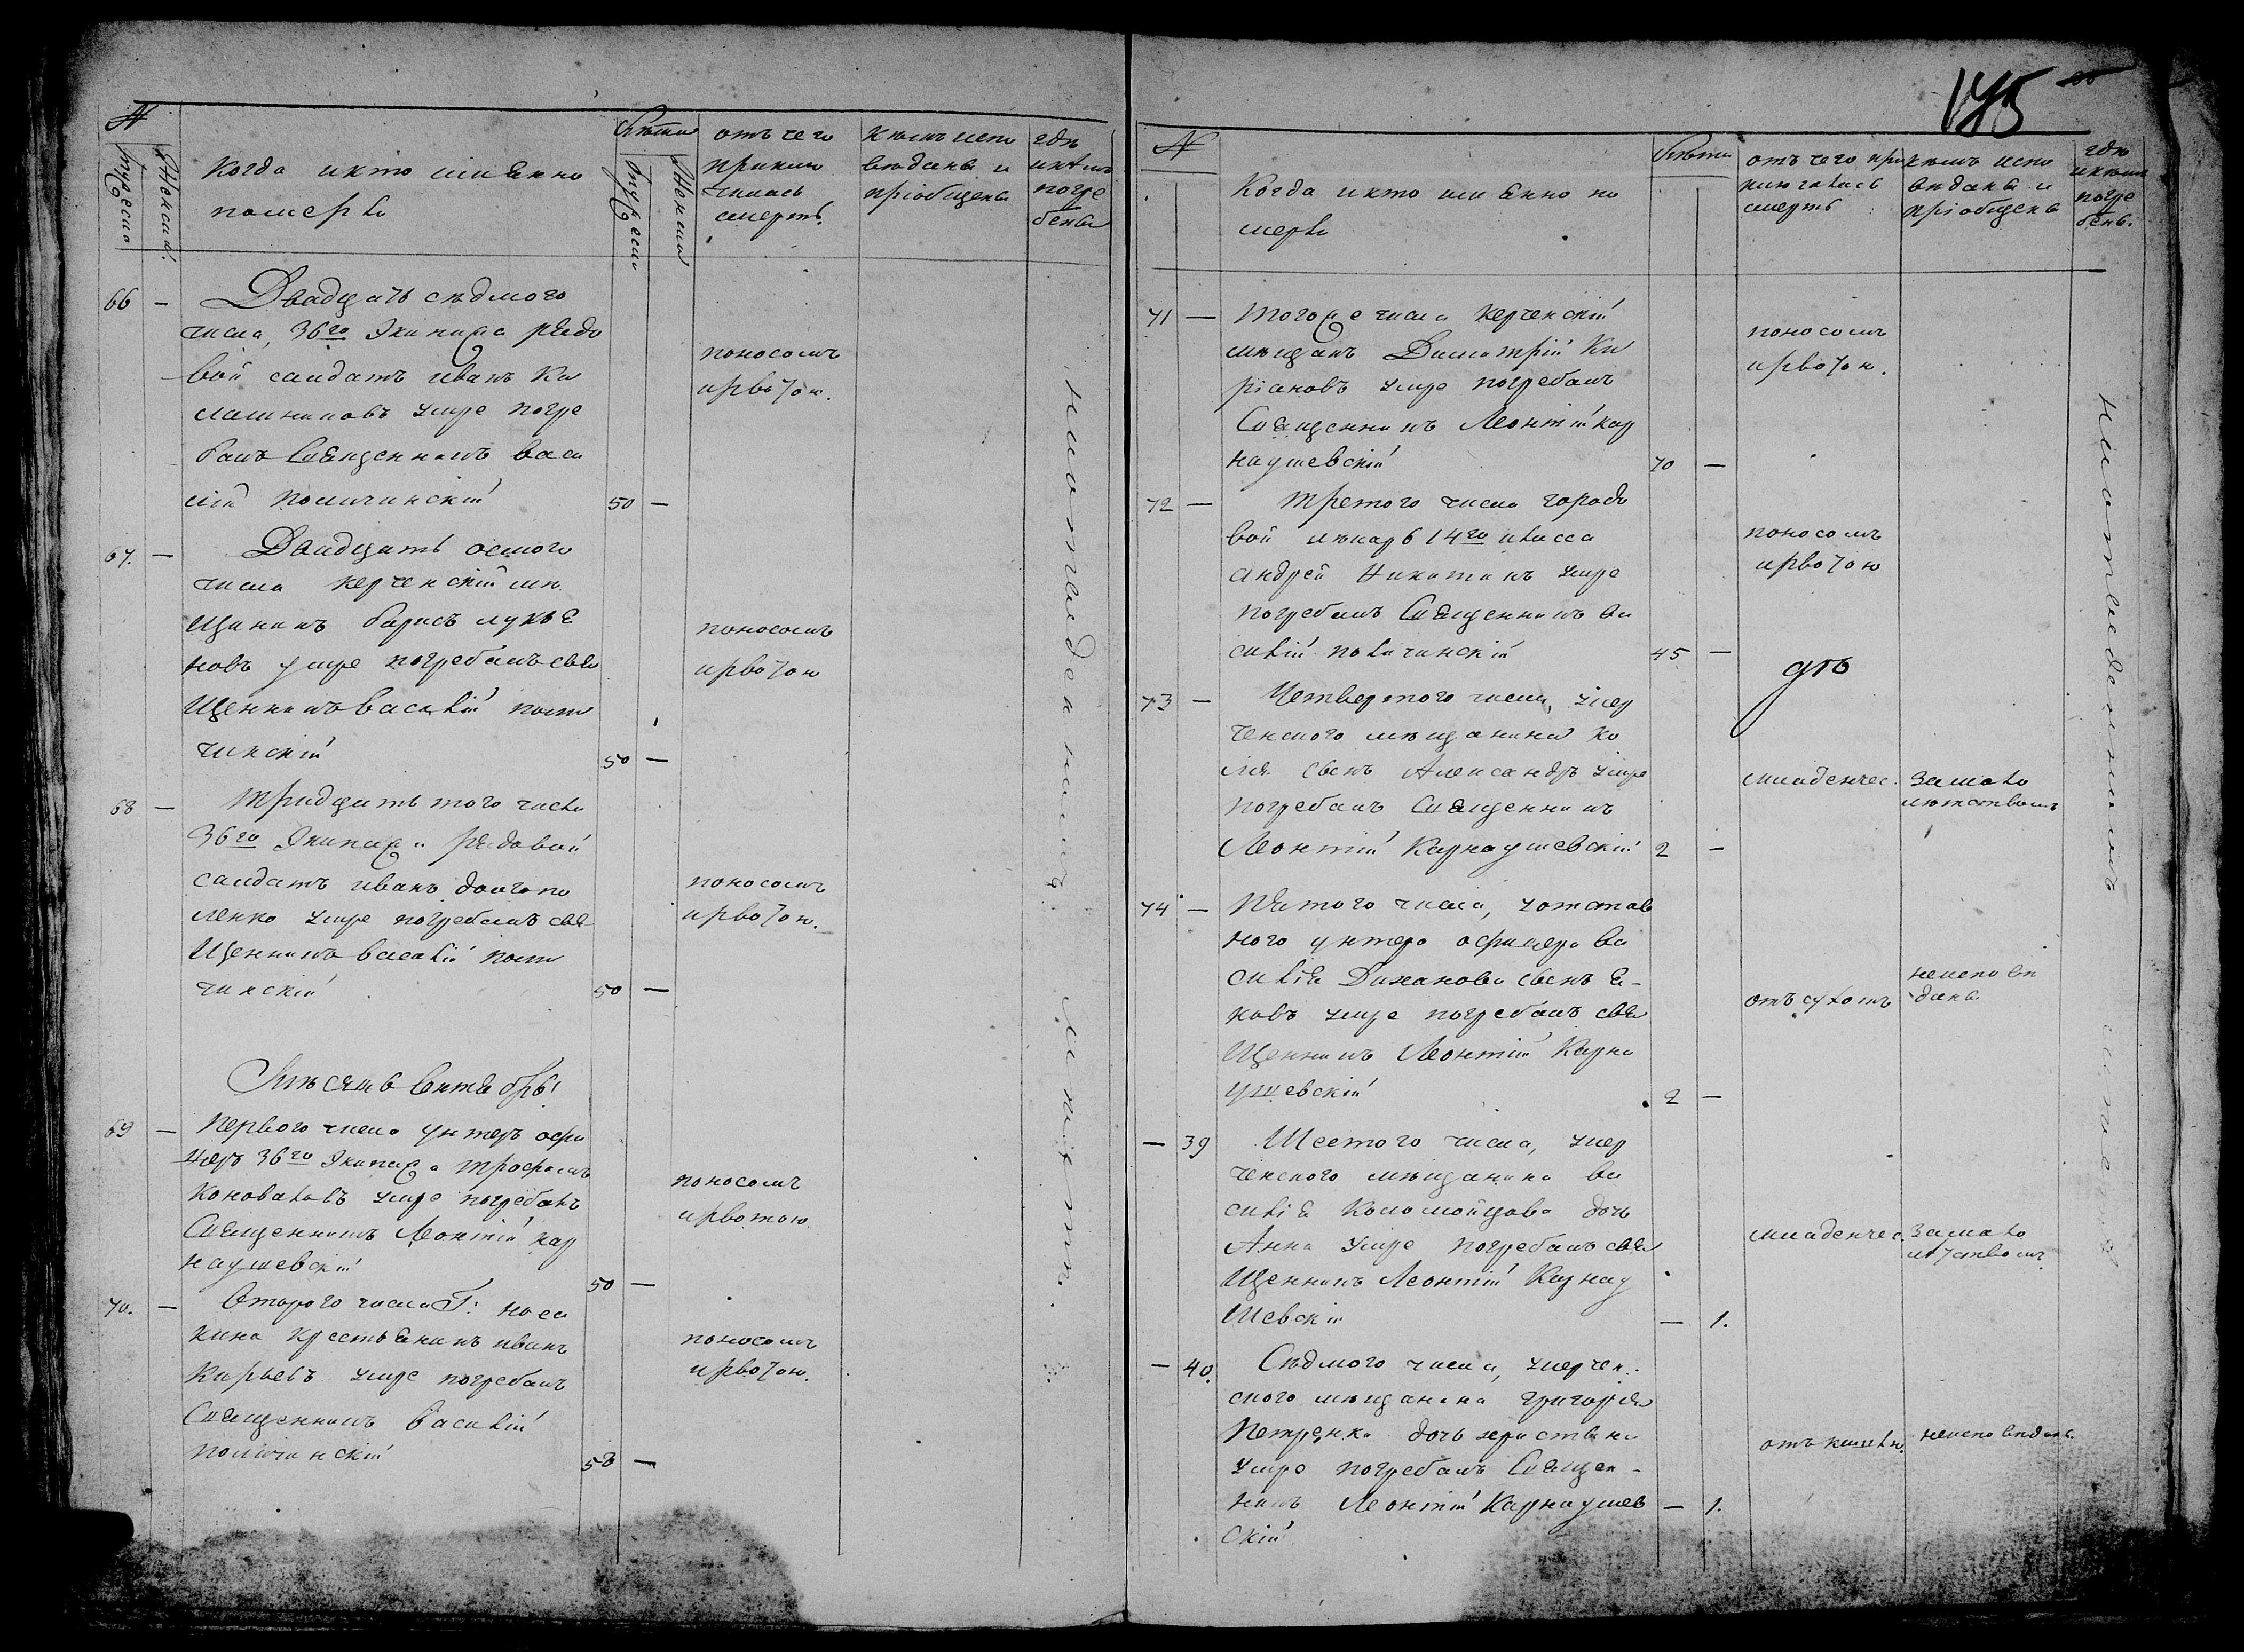 №
мужеска
женска
Когда и кто именно
померлъ
Лѣта
мужеска
женска
отъ чего
приклю
чилась
смерть
кѣмъ испо
вѣданы и
пріобщены
гдѣ
и кѣмъ
погре
бены
66 —
Двадцать седмого
числа, 36го Экипажа рядо
вой салдатъ иванъ Ка
лашниковъ умре погре
балъ Священникъ васи
лій поличинскій
50 —
поносомъ
и рвотою.
67. —
Двадцать осмого
числа керченскій мѣ
щанинъ борисъ лукья
новъ умре погребалъ свя
щенникъ василій поли
чинскій
50 —
поносомъ
и рвотою
68 —
Тридцать того числа
36го Экипажа рядовой
салдатъ иванъ долгопо
ленко умре погребалъ свя
щенникъ василій поли
чинскій
50 —
поносомъ
и рвотою.
Мѣсяцъ Октябрь!
69 —
Первого числа унтеръ офи
церъ 36го Экипажа трофимъ
Коноваловъ умре погребалъ
Священникъ Леонтій кар
наушевскій
50 —
поносомъ
и рвотою.
70. —
Второго числа Г:
кина крестьянинъ иванъ
Кирьевъ умре погребалъ
Священникъ василій
поличинскій
58 —
поносомъ
и рвотою.
на кладбищѣ
175
№
Когда и кто именно по
мерли
Лѣта
отъ чего при
ключилась
смерть
кѣмъ испо
вѣданы и
пріобщены
гдѣ
и кѣмъ
погре
бены.
71 —
Того же числа керченскій
мѣщанинъ Димитрій Ки
ріаковъ умре погребалъ
Священникъ Леонтій кар
наушевскій
70 —
поносомъ
и рвотою.
72 —
Третого числа городо
вой лѣкарь 14го класса
андрей Никитинъ умре
погребалъ Священникъ ва
силій поличинскій
45 —
поносомъ
и рвотою
73 —
Четвертого числа, укер
ченского мѣщанина
сынъ Александръ умре
погребалъ Священникъ
Леонтій Карнаушевскій
2 —
младенчес.
за мало
лѣтствомъ
74 —
Пятого числа, у отстав
ного унтеръ офицера ва
силія сынъ Я-
ковъ умре погребалъ свя
щенникъ Леонтій Карна
ушевскій
2 —
отъ сухотъ
неиспов
данъ
— 39
Шестого числа, укер
ченского мѣщанина ва
силія Коломойцова дочь
Анна умре погребалъ свя
щенникъ Леонтій Карнау
шевскій
— 1.
младенчес.
за мало
лѣтствомъ
— 40.
Седмого числа, укерчен
ского мѣщанина григорія
Петренка дочь христина
умре погребалъ Священ-
никъ Леонтій Карнаушев
скій
— 1.
отъ кашлю.
неисповѣдана